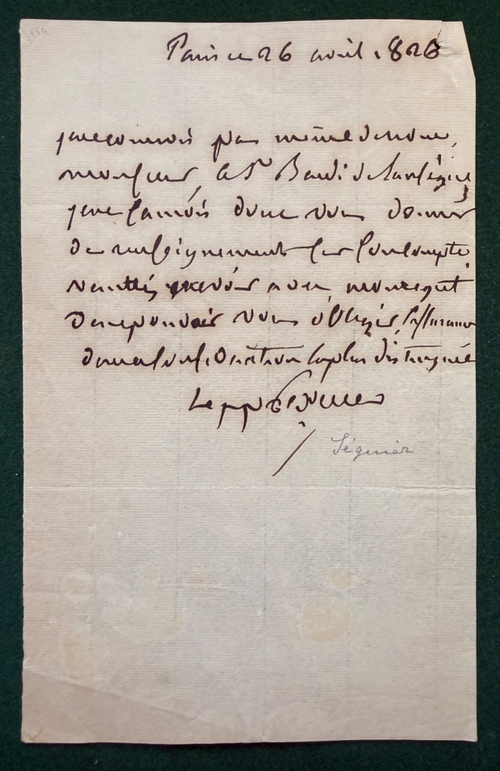 Paris ce 26 avril 1828
je ne connois pas même de nom,
monsieur, le Sr Baudi de
je ne sçaurois donc vous donner
de renseignements sur son compte
veuillés recevoir avec mon regret
de ne pouvoir vous obliger, l'assurance
de ma considération la plus distinguée
Le pp Séguier
Séguier